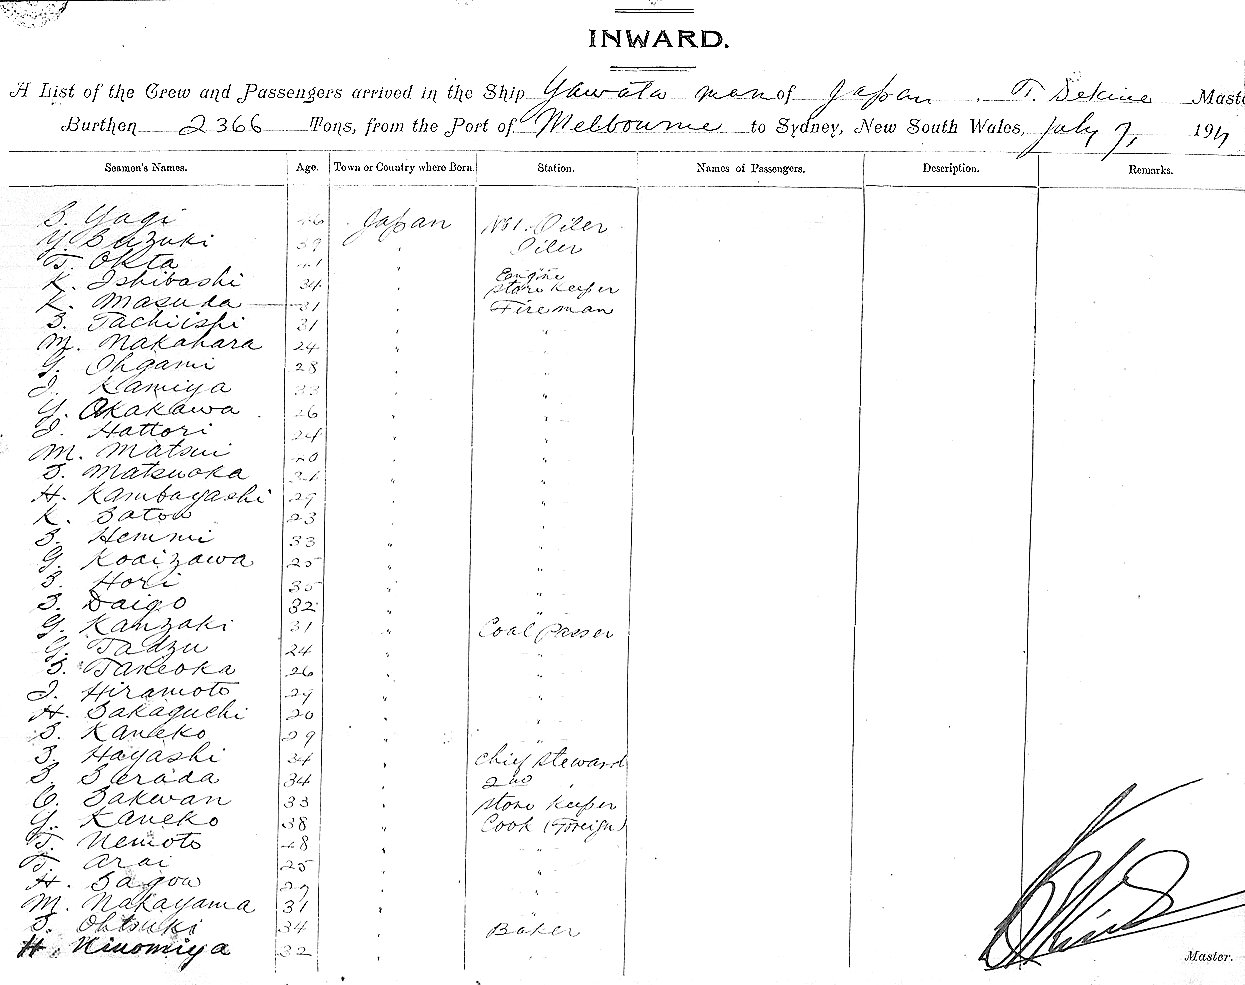 INWARD.
A List of the Crew and Passengers arrived in the Ship Yawata maru of Japan. T. Sekine Maste
Burthen 2366 Tons, from the Port of Melbourne to Sydney, New South Wales, July 7, 191
Seamen's Names. Age. Town or Country where Born. Station. Names of Passengers. Description. Remarks.
S. Yagi Japan No 1. Oiler
Y. Suzuki " Oiler
T. Ohta "
K. Ishibashi 34 " Engine Store keeper
K. Masuda 31 " Fireman
S. Tachiishi 31 " "
M. Nakahara 24 " "
G. Ohgami 28 " "
I. Kamiya 33 " "
Y. Okakawa 26 " "
I. Hattori 24 " "
M. Matsui 20 " "
S. Matsuoka 21 " "
H. Kambayashi 29 " "
K. Satow 23 " "
S. Hemmi 33 " "
G. Koaizawa 25 " "
S. Hori 35 " "
S. Daigo 32 " "
G. Kanzaki 31 " Coal Passer
G. Tadzu 24 " "
S. Takeoka 26 " "
I. Hiramoto 29 " "
H. Sakaguchi 20 " "
S. Kaneko 29 " "
S. Hayashi 34 " Chief Steward
S. Serada 34 " 2nd "
C. Sakwan 33 " Store keeper
Y. Kaneko 38 " Cook (Foreign)
T. Nemoto 28 " "
T. Arai 25 " "
H. Sagow 29 " "
M. Nakayama 31 " "
S. Ohtsuki 34 " Baker
H. Ninomiya 32 " "
Master.